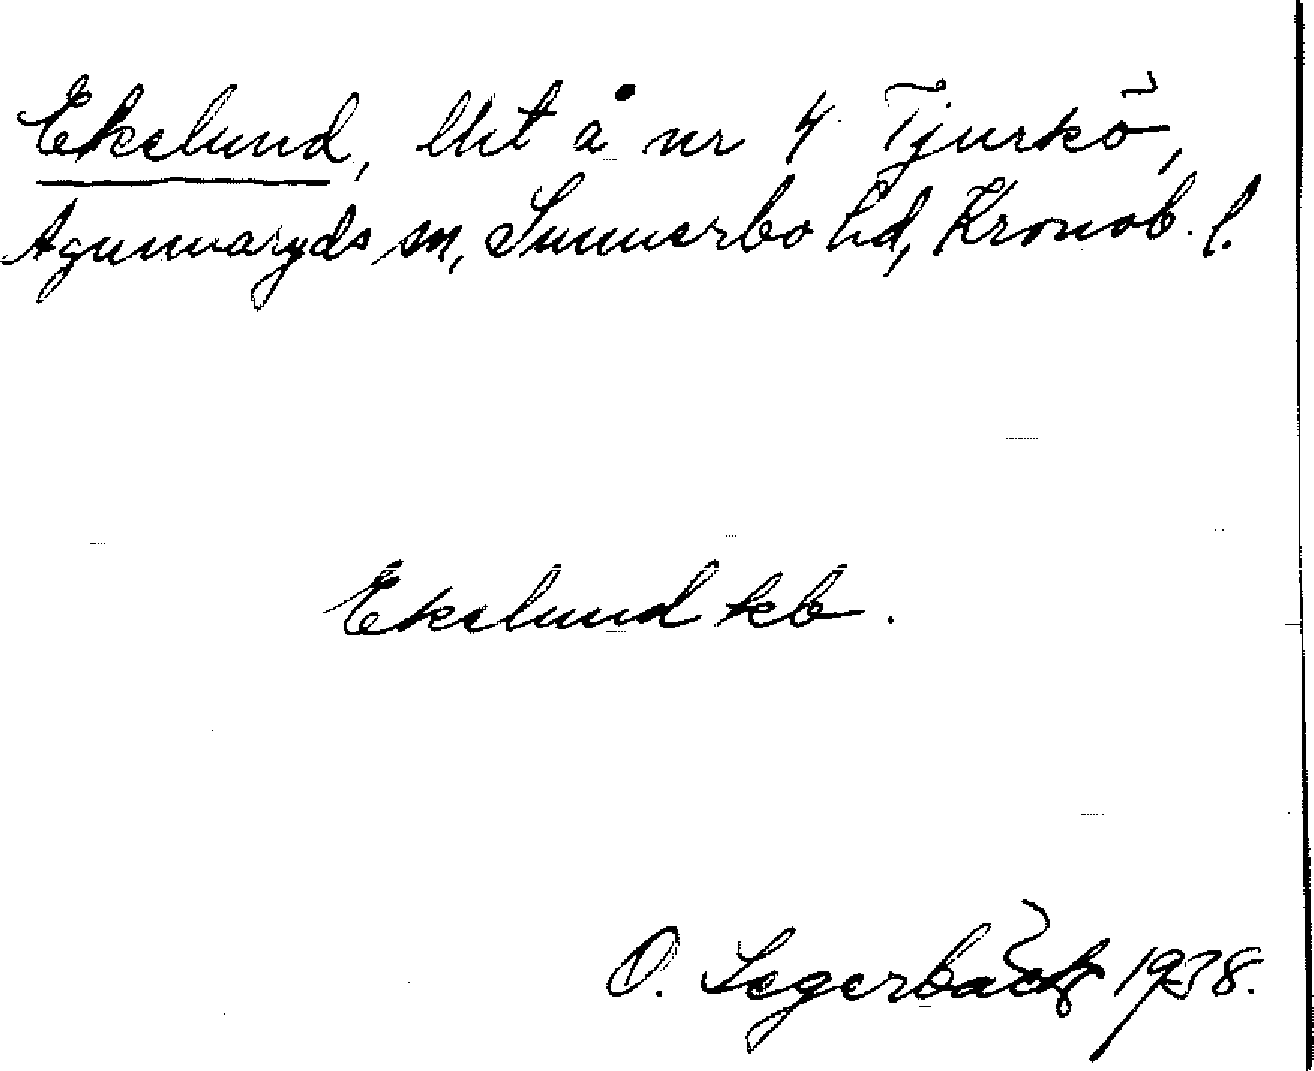 Ekelund, lht å nr 4 Tjurkö,
Agunnaryds sn, Sunnerbo hd, Kronob. l.
Ekelund kb.
O. Segerbäck 1938.